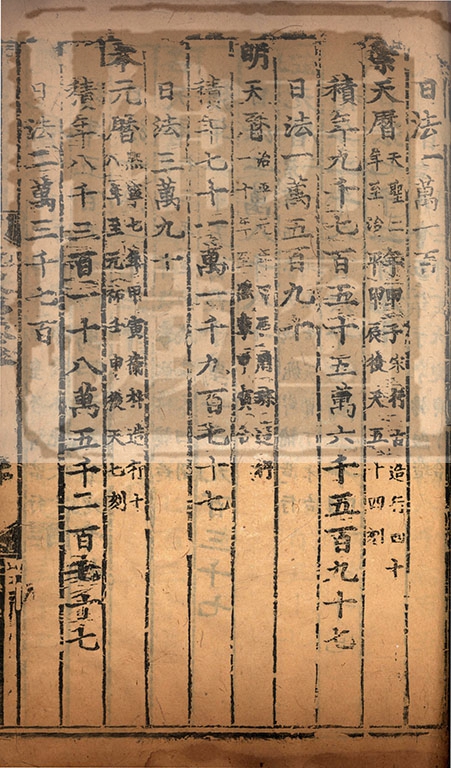 日法一萬一百
崇天曆
天聖二年甲子宋行古造行四十
年至治平甲辰後天五十四刻
積年九千七百五十五萬六千五百九十七
日法一萬五百九十
明天曆
治平元年甲辰周琮造行
一十年至熙寧甲寅合
積年七十一萬一千九百七十七
日法三萬九十
奉元曆
熙寧七年甲寅衛朴造行十
八年至元祐壬申後天七刻
積年八千三百一十八萬五千二百七
日法二萬三千七百